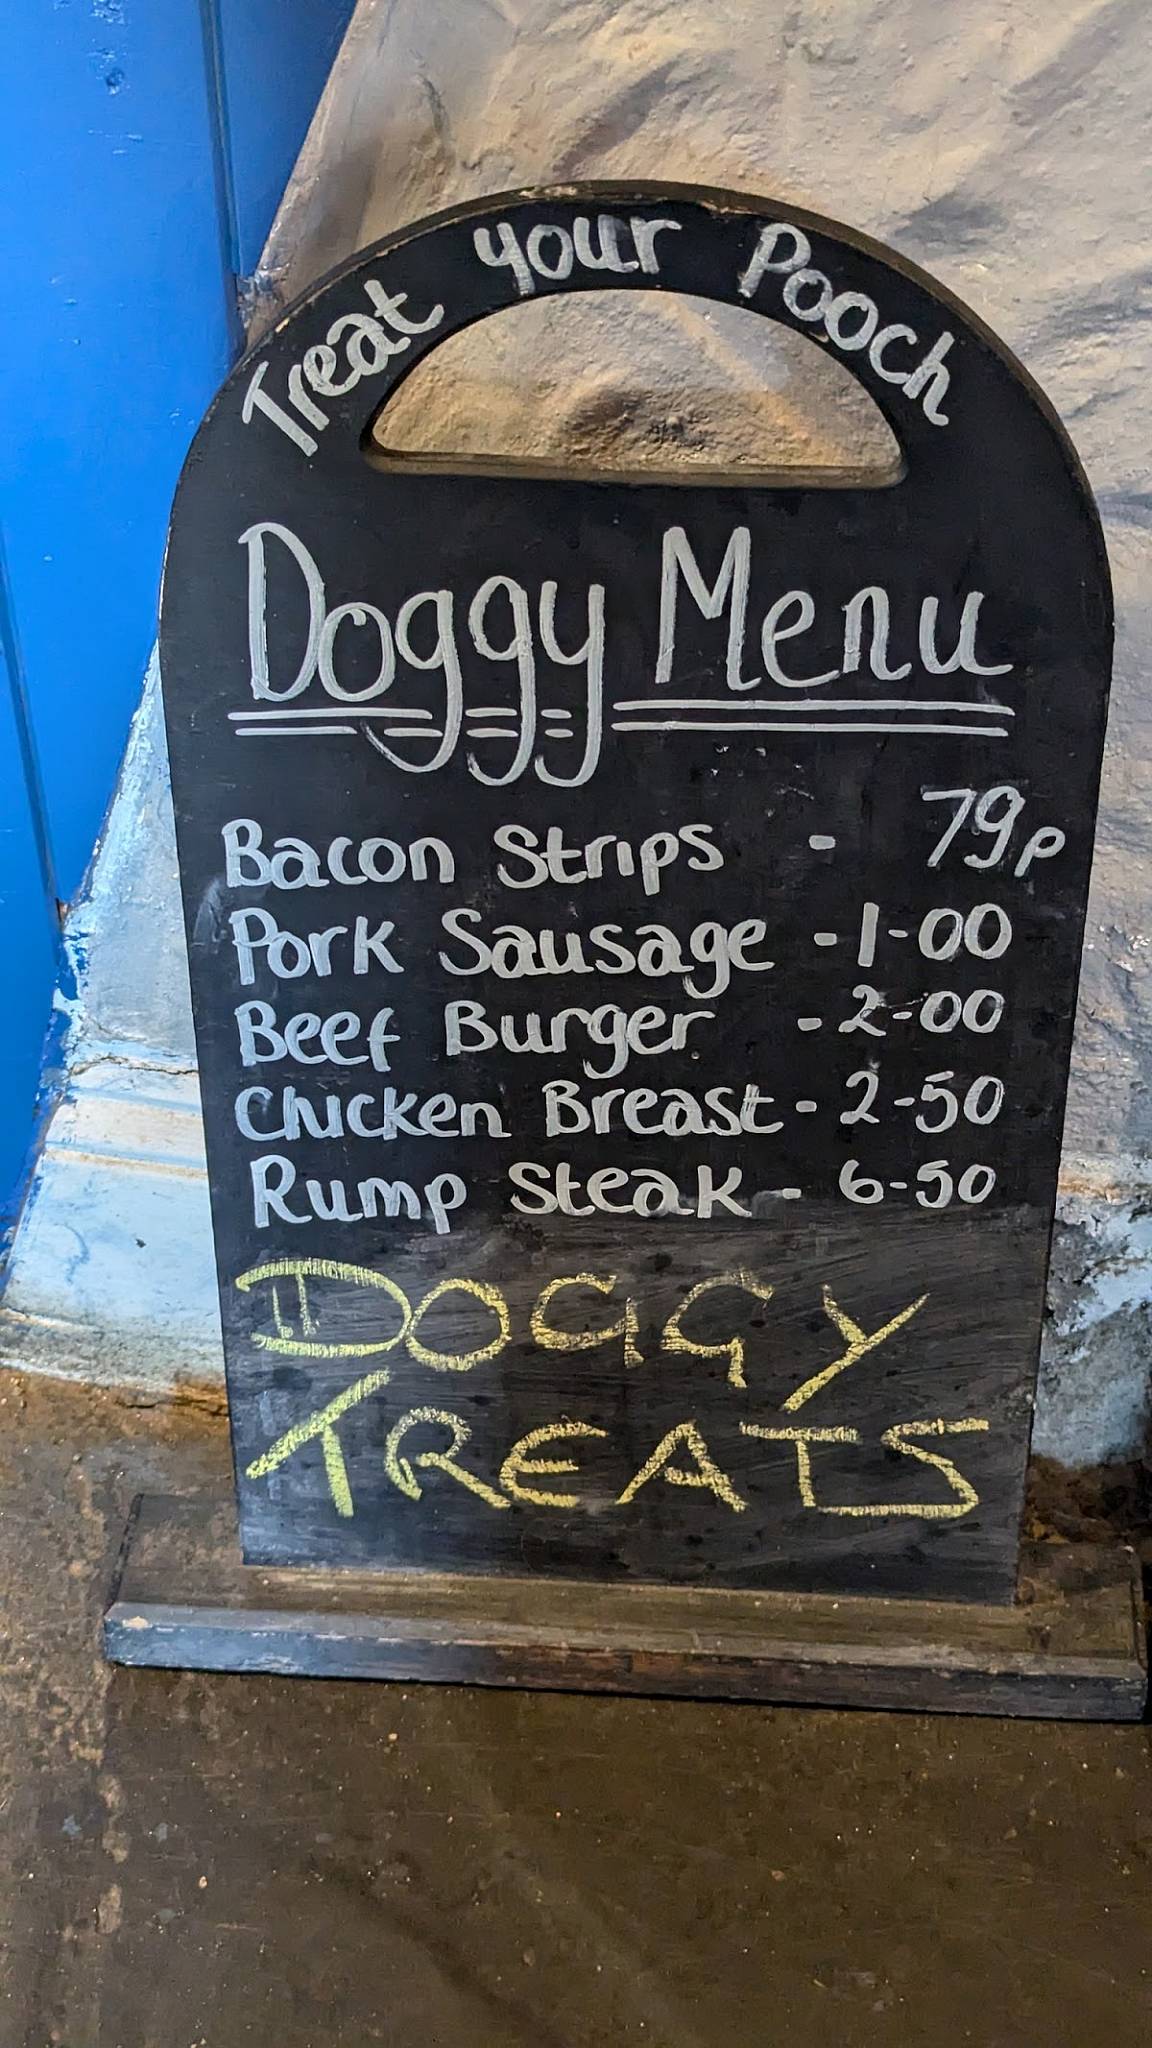 Treat your Pooch
Doggy Menu
Bacon Strips - 79p
Pork Sausage - 1-00
Beef Burger - 2-00
Chicken Breast - 2-50
Rump Steak - 6-50
DOGGY
TREATS